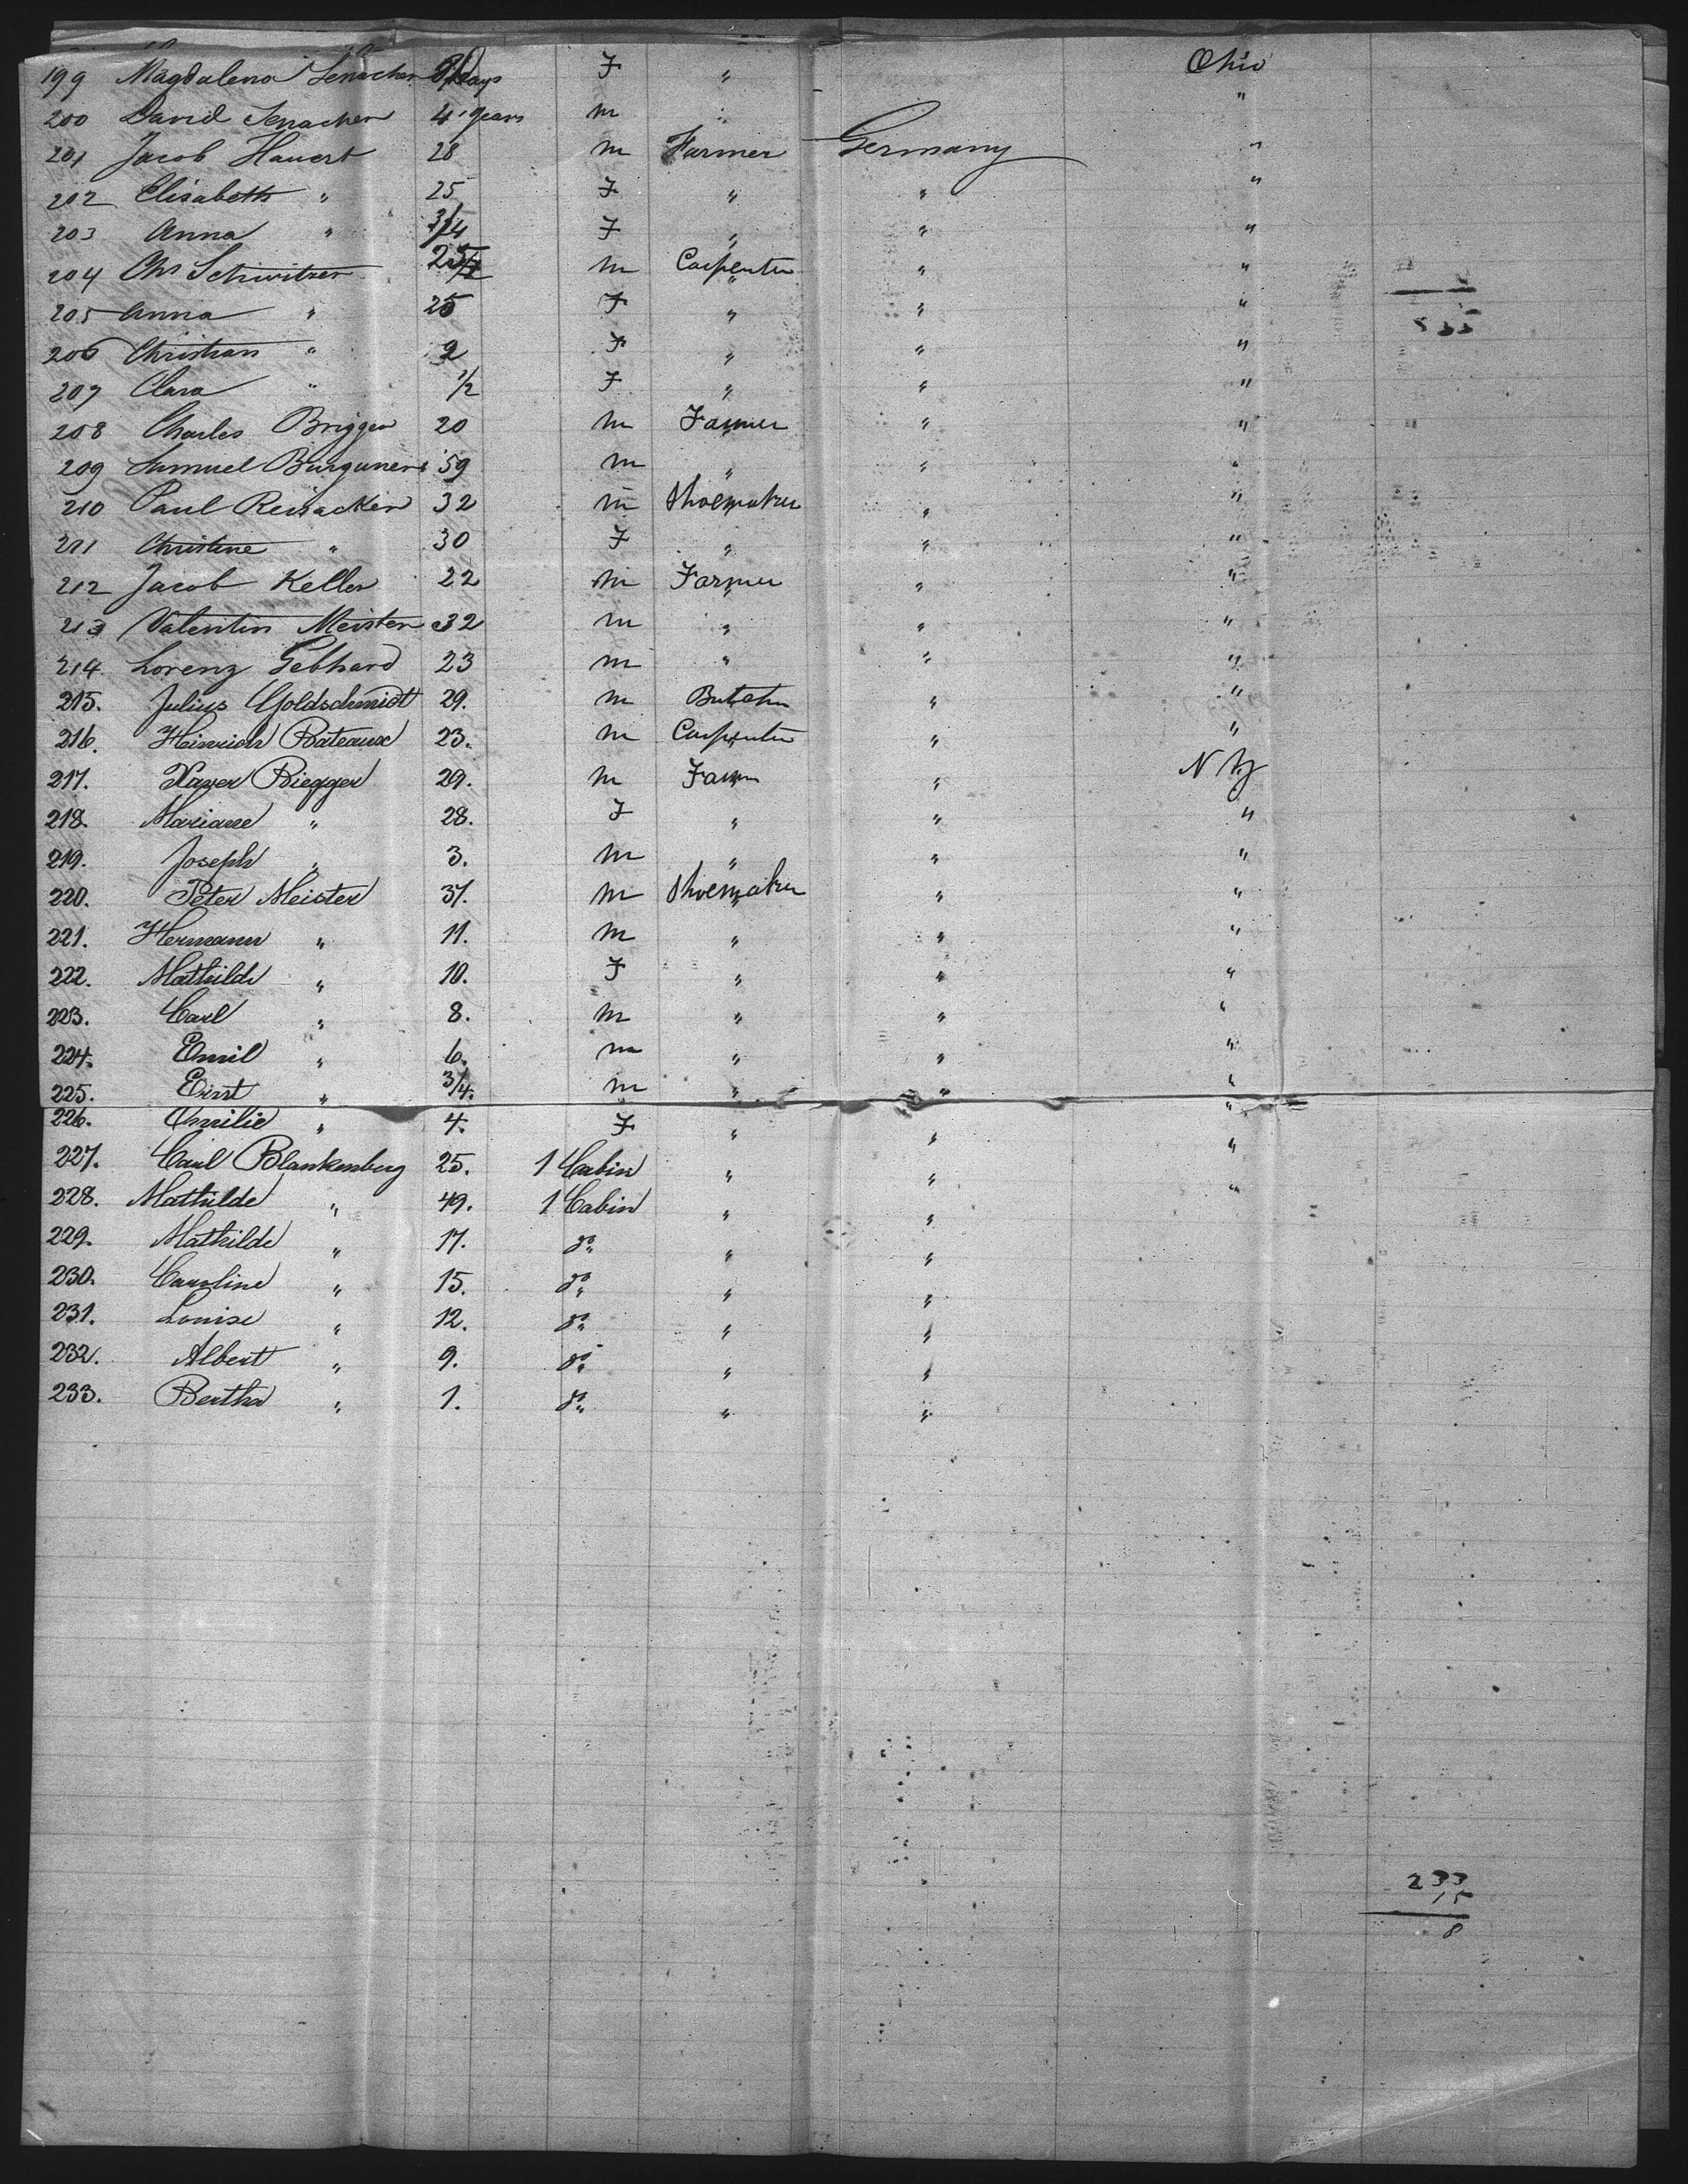 199 Magdalena Senacher Days F " Ohio
200 David Senacher 4 years m " "
201 Jacob Hauert 28 m Farmer Germany "
202 Elisabeth " 25 F " " "
203 Anna " 3/4 F " " "
204 Chs Schwitzer 25 m Carpenter " "
205 Anna " 25 F " " "
206 Christian " 2 F " " "
207 Clara " 1/2 F " " "
208 Charles Brigger 20 m Farmer " "
209 Samuel Burguner 59 m " " "
210 Paul Reisacker 32 m Shoemaker " "
211 Christine " 30 F " " "
212 Jacob Keller 22 m Farmer " "
213 Valentin Meister 32 m " " "
214 Lorenz Gebhard 23 m " " "
215. Julius Goldschmidt 29. m Butcher " "
216. Heinrich Bateaux 23. m Carpenter " "
217. Xaver Riegger 29. m Farmer " N Y
218. Mariane " 28. F " " "
219. Joseph " 3. m " " "
220. Peter Meister 37. m Shoemaker " "
221. Hermann " 11. m " " "
222. Mathilde " 10. F " " "
223. Carl " 8. m " " "
224. Emil " 6. m " " "
225. Ernst " 3/4. m " " "
226. Emilie " 4. F " " "
227. Carl Blankenberg 25. 1 Cabin " " "
228. Mathilde " 49. 1 Cabin " " "
229. Mathilde " 17. do " "
230. Caroline " 15. do " "
231. Louise " 12. do " "
232. Albert " 9. do " "
233. Bertha " 1. do " "
233
15
8